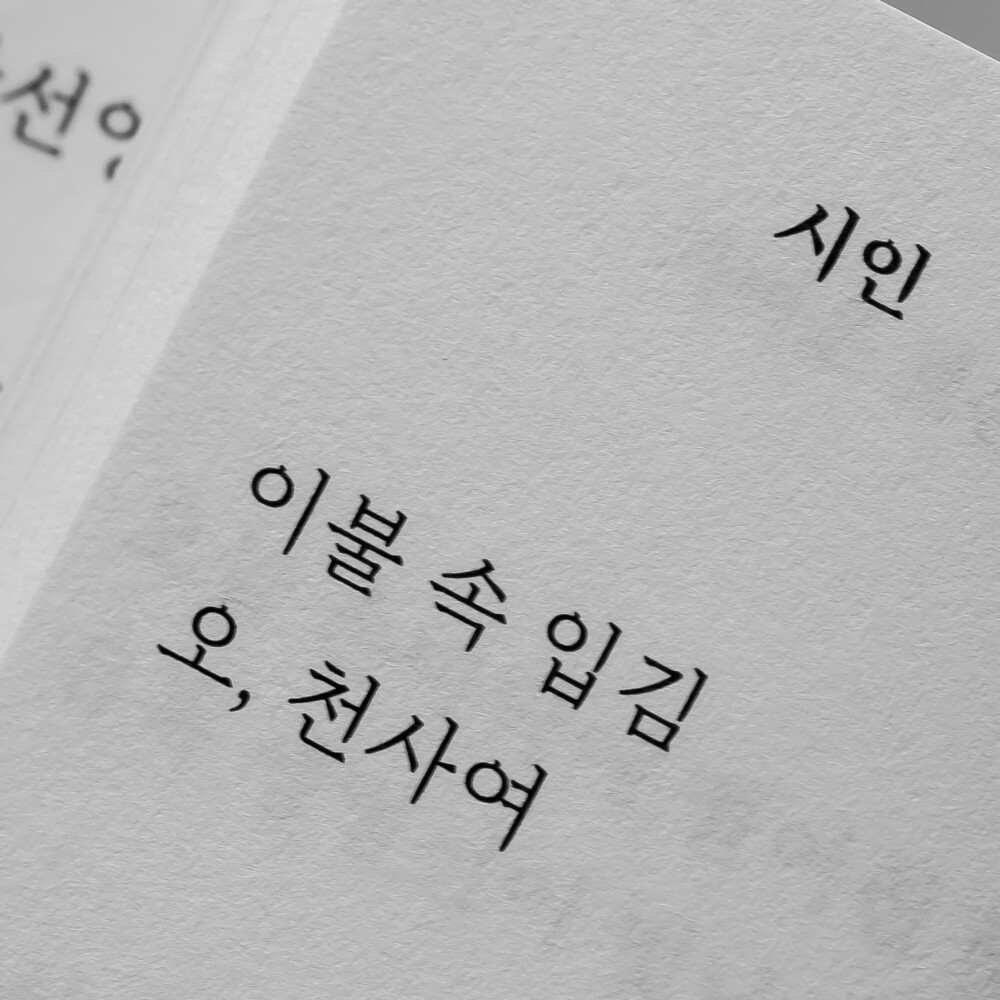 시인
이불 속 입김
오, 천사여